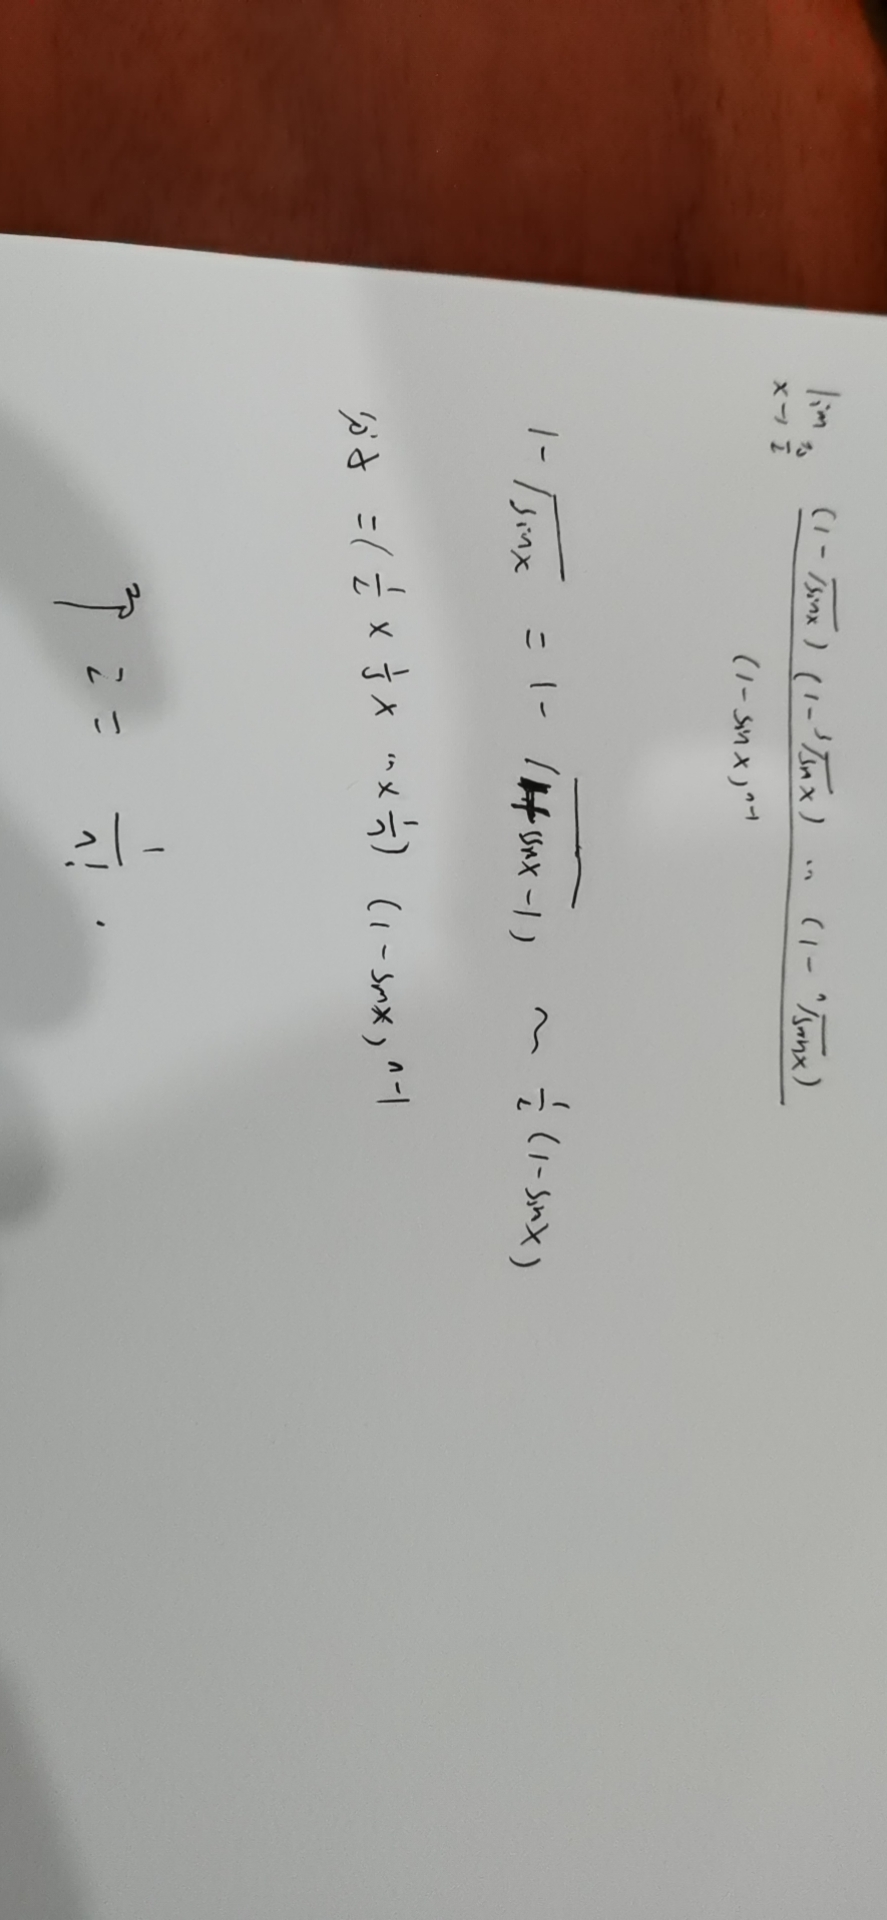 lim x→π/2 (1-√sinx)(1-³√sinx)…(1-ⁿ√sinx) / (1-sinx)ⁿ⁻¹
1-√sinx = 1-√(1+sinx-1) ~ 1/2 (1-sinx)
分子 = (1/2 × 1/3 × … × 1/n) (1-sinx)ⁿ⁻¹
原式 = 1/n! .